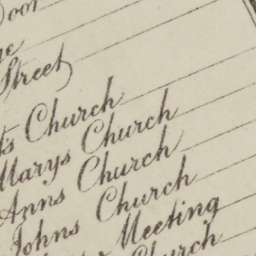 Street
Church
Marys Church
Anns Church
Johns Church
Meeting
Church